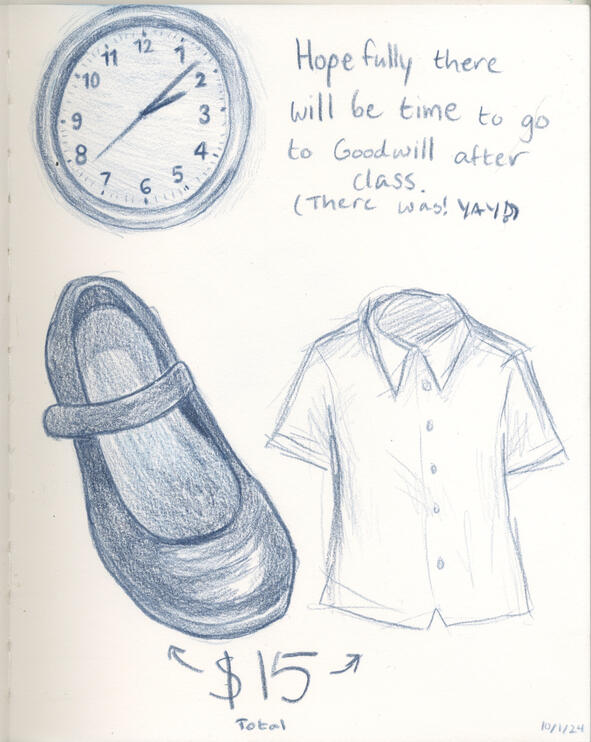 12
11
1
10
2
9
3
8
4
7
5
6
Hopefully there
will be time to go
to Goodwill after
class.
(There was! YAY!)
$15
Total
10/1/24